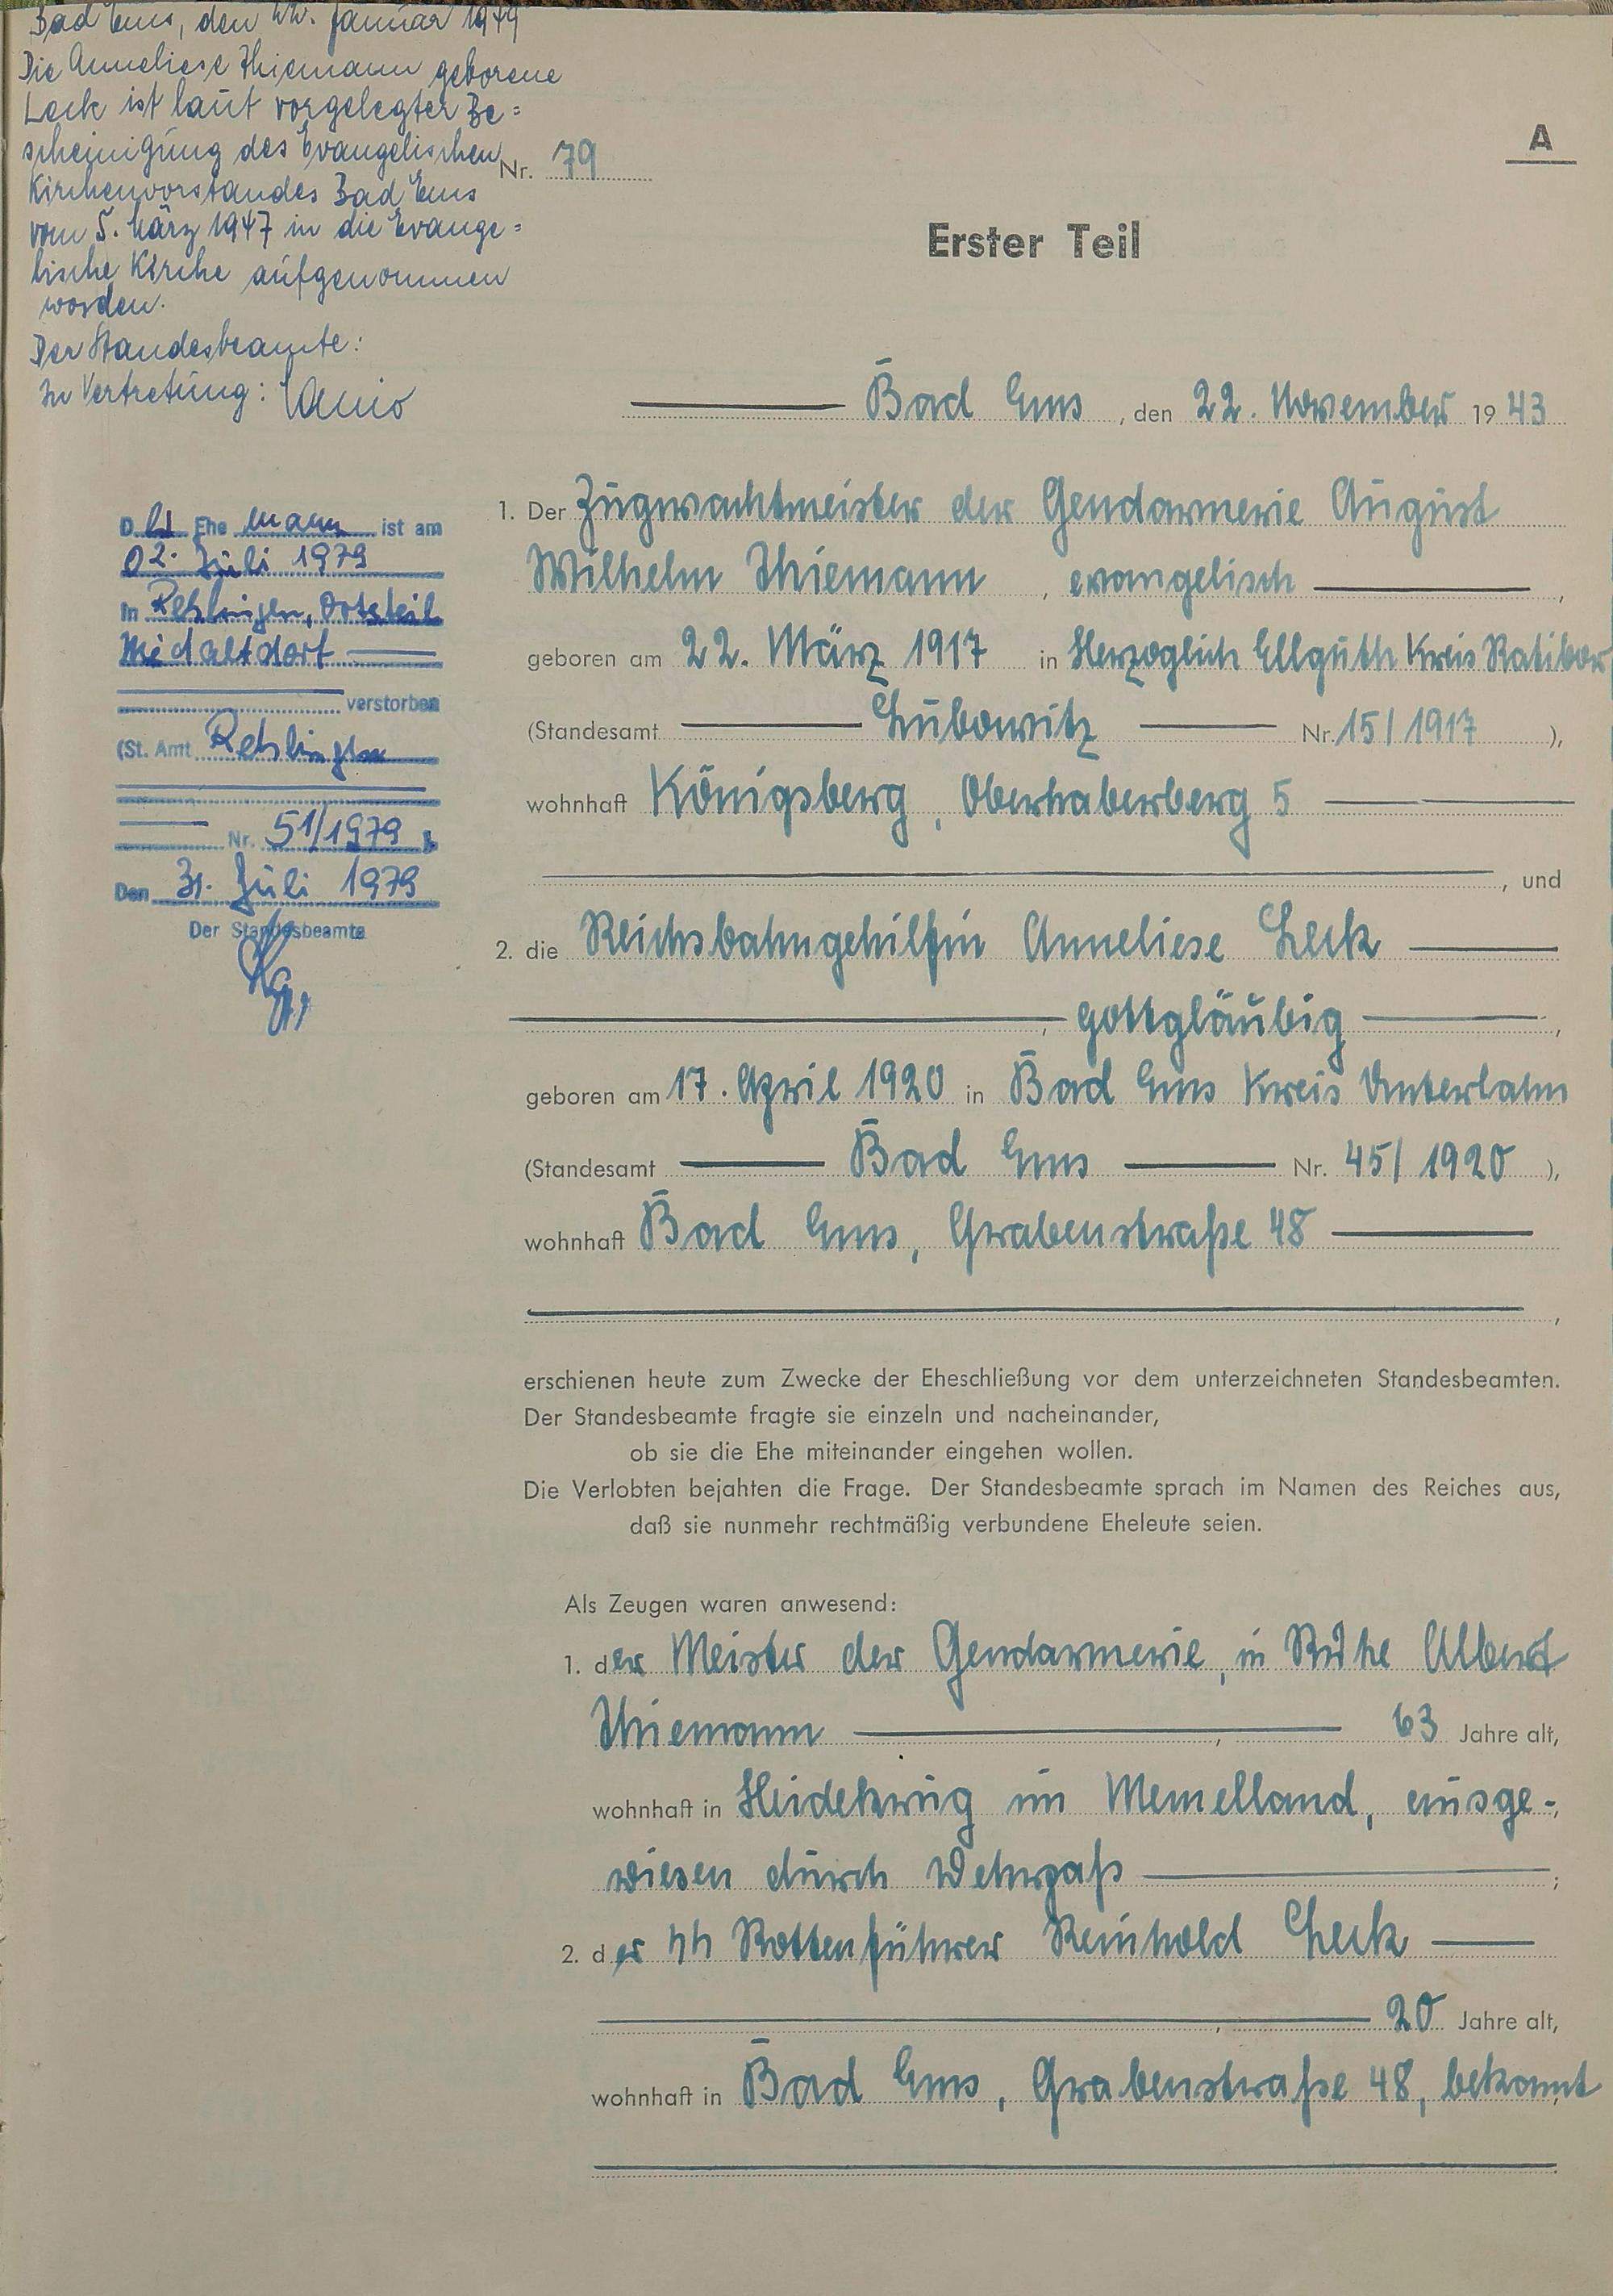 Bad Ems, den 22. Januar 1949
Die Anneliese Thiemann geborene
Leck ist laut vorgelegter Be=
scheinigung des Evangelischen
Kirchenvorstandes Bad Ems
vom 5. März 1947 in die Evange=
lische Kirche aufgenommen
worden.
Der Standesbeamte:
In Vertretung:
Der Ehe mann ist am
02. Juli 1979
in Rehlingen, Ortsteil
Niedaltdorf
verstorben
(St. Amt Rehlingen
Nr. 51/1979 ).
Den 31. Juli 1979
Der Standesbeamte
A
Nr. 79
Erster Teil
Bad Ems, den 22. November 1943
1. Der Zugwachtmeister der Gendarmerie August
Wilhelm Thiemann, evangelisch,
geboren am 22. März 1917 in Herzoglich Ellguth Kreis Ratibor
(Standesamt Lubowitz Nr. 15/1917 ),
wohnhaft Königsberg, Oberhaberberg 5
, und
2. die Reichsbahngehilfin Anneliese Leck
, gottgläubig,
geboren am 17. April 1920 in Bad Ems Kreis Unterlahn
(Standesamt Bad Ems Nr. 45/1920 ),
wohnhaft Bad Ems, Grabenstraße 48
,
erschienen heute zum Zwecke der Eheschließung vor dem unterzeichneten Standesbeamten.
Der Standesbeamte fragte sie einzeln und nacheinander,
ob sie die Ehe miteinander eingehen wollen.
Die Verlobten bejahten die Frage. Der Standesbeamte sprach im Namen des Reiches aus,
daß sie nunmehr rechtmäßig verbundene Eheleute seien.
Als Zeugen waren anwesend:
1. der Meister der Gendarmerie, in Ruhe Albert
Thiemann, 63 Jahre alt,
wohnhaft in Heidekrug im Memelland, ausge-,
wiesen durch Wehrpaß ;
2. der SS Rottenführer Reinhold Leck
, 20 Jahre alt,
wohnhaft in Bad Ems, Grabenstraße 48, bekannt